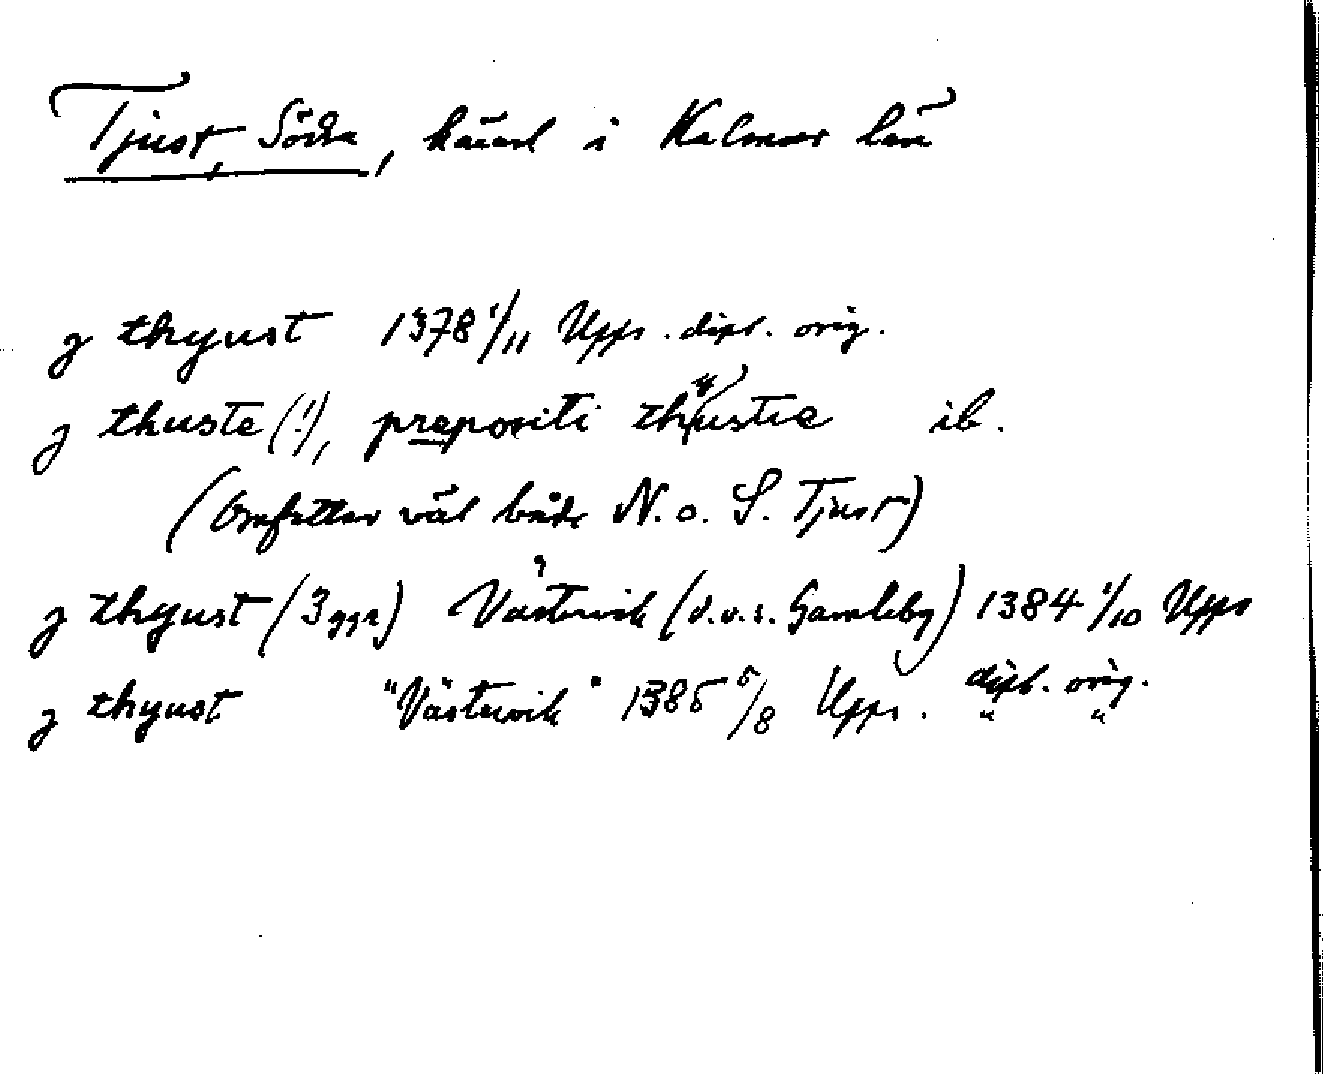 Tjust, Södra, härad i Kalmar län
j thyust 1378 1/11 Upps. dipl. orig.
j thuste (!), prepositi thyustie ib.
(Omfattar väl både N. o. S. Tjust)
j thyust (3 ggr) Västervik (d.v.s. Gamleby) 1384 1/10 Upps dipl. orig.
j thyust "Västervik" 1385 5/8 Upps. " "